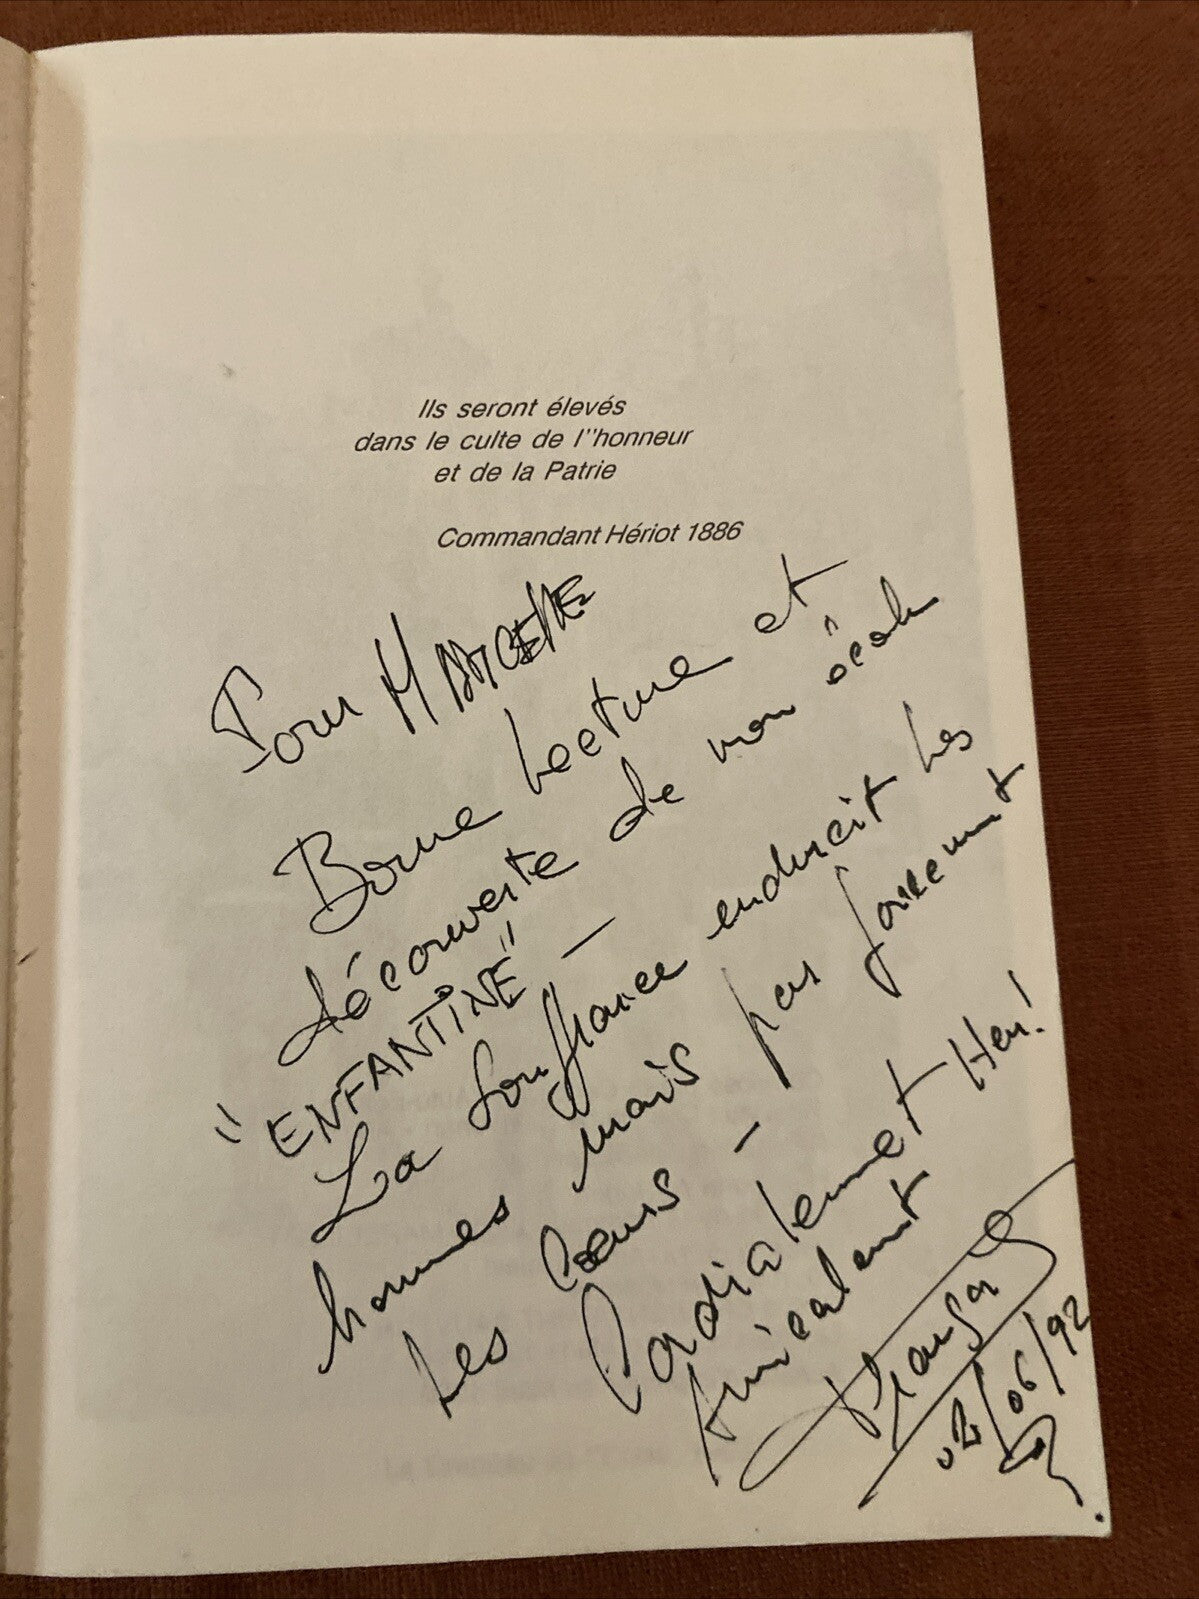 Ils seront élevés
dans le culte de l''honneur
et de la Patrie
Commandant Hériot 1886
Pour MARCELLE
Bonne Lecture et
découverte de mon école
"ENFANTINE" —
La Souffrance endurcit les
hommes mais pas forcement
les Cœurs —
Cordialement
Amicalement
02/06/92